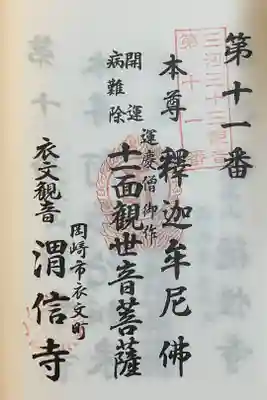 第十一番
三河三十三観音
第十一
本尊 釋迦牟尼佛
運慶僧御作
開運
病難除
十一面觀世音菩薩
岡崎市衣文町
衣文觀音 渭信寺